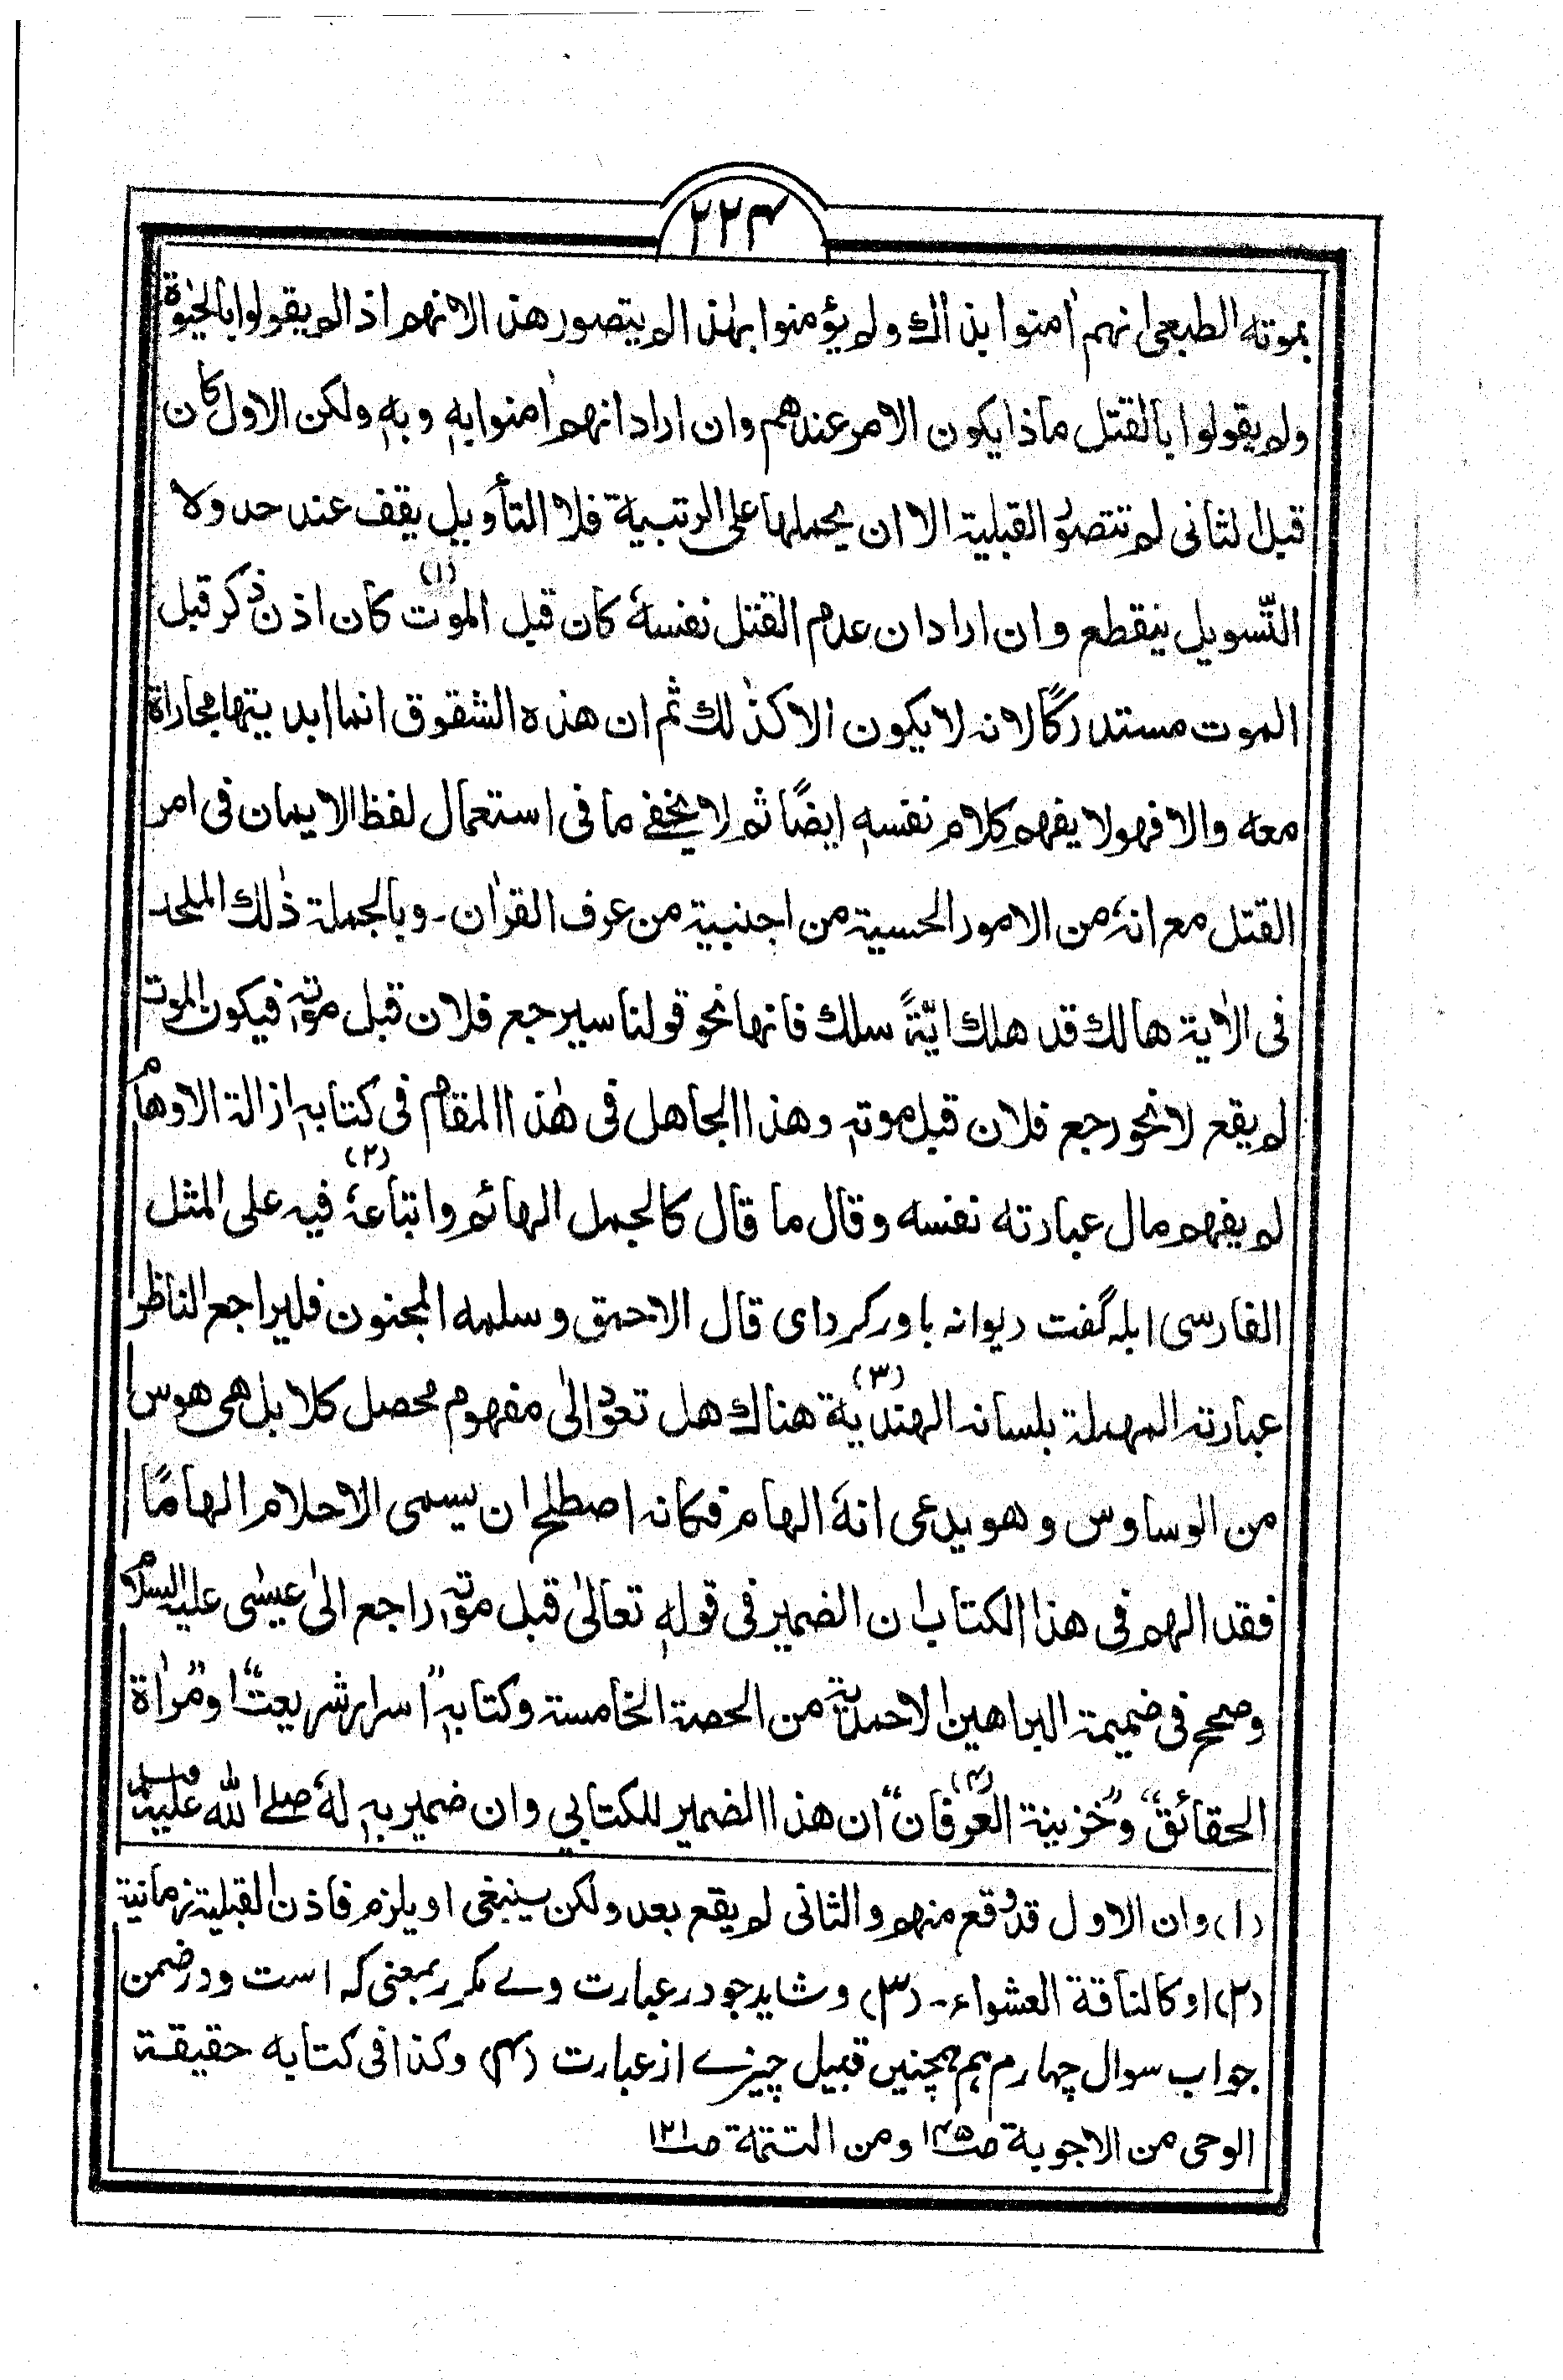 ۲۲۴
بموته الطبعى انهم اٰمنوا بذالك ولم يؤمنوا بهٰذا لم يتصور هذا لانهم اذا لم يقولوا بالحيٰوة
ولم يقولوا بالقتل ماذا يكون الامر عندهم وان اراد انهم اٰمنوا بهٖ وبهٖ ولكن الاول كان
قبل الثانى لم تتصور القبلية الا ان يحملها على الرتبية فلا التأويل يقف عند حد ولا
التّسويل ينقطع وان اراد ان عدم القتل نفسهٗ كان قبل الموت (۱) كان اذن ذكر قبل
الموت مستدركًا لانہ لا يكون الا كذٰلك ثم ان هذه الشقوق انما ابديتها مجاراة
معه والا فهو لا يفهم كلام نفسهٖ ايضًا ثم لا يخفے ما فى استعمال لفظ الايمان فى امر
القتل مع انہٗ من الامور الحسية من اجنبية من عرف القراٰن۔ وبالجملة ذٰلك الملحد
فى الاٰية هالك قد هلك ايّةً سلك فانها نحو قولنا سيرجع فلان قبل موتہٖ فيكون الموت
لم يقع لا نحو رجع فلان قبل موتہٖ وهذا الجاهل فى هٰذا المقام فى كتابہٖ ازالة الاوهام
لم يفهم مال عبارته نفسه وقال ما قال كالجمل الهائم (۲) واتباعہٗ فيه على المثل
الفارسى ابلہ گفت ديوانہ باور كرد اى قال الاحمق وسلمه المجنون فليراجع الناظر
عبارتہ المهملة بلسانہ الهندية (۳) هناك هل تعود الىٰ مفهوم محصل كلا بل هى هوس
من الوساوس وهو يدعى انهٗ الهام فكانہ اصطلح ان يسمى الاحلام الهامًا
فقد الهم فى هذا الكتاب ان الضمير فى قولهٖ تعالىٰ قبل موتہٖ راجع الىٰ عيسٰى عليہ السلام
وصحح فى ضميمة البراهين الاحمدية من الحصة الخامسة وكتابہٖ "اسرار شريعت" و"مراٰة
الحقائق" و"خزينة العرفان" (۴) ان هذا الضمير للكتابي وان ضمير بہٖ لهٗ صلے الله عليه وسلم
(۱) وان الاول قد وقع منهم والثانى لم يقع بعد ولكن سينبغى او يلزم فاذن القبلية زمانية
(۲) او كالناقة العشواء۔ (۳) وشايد جو در عبارت وے مكرر بمعنى كہ است ودر ضمن
جواب سوال چہارم ہم ہمچنيں قبيل چيزے از عبارت (۴) وكذا فى كتابه حقيقة
الوحى من الاجوبة صـ۱۴۵ ومن التتمة صـ۱۲۱